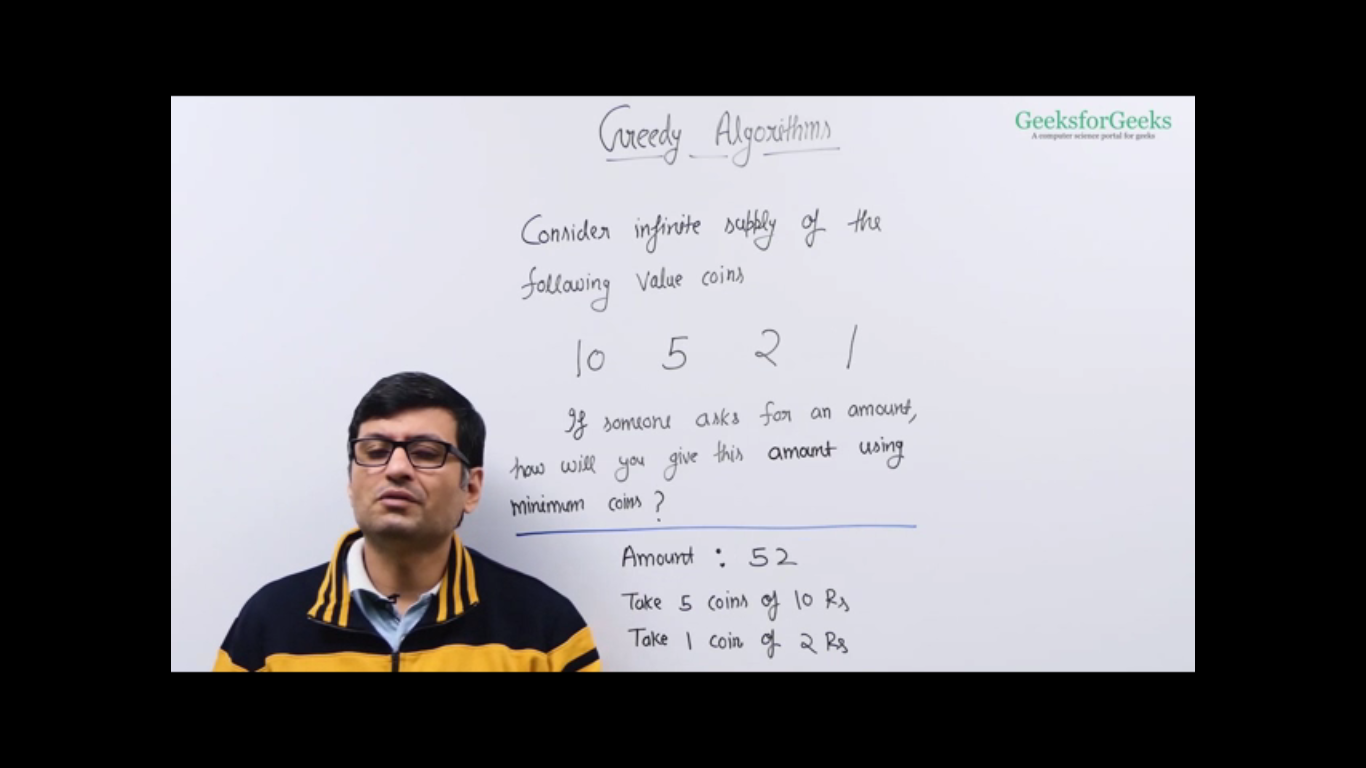 Greedy Algorithms
GeeksforGeeks
A computer science portal for geeks
Consider infinite supply of the
following value coins
10 5 2 1
If someone asks for an amount,
how will you give this amount using
minimum coins ?
Amount : 52
Take 5 coins of 10 Rs
Take 1 coin of 2 Rs